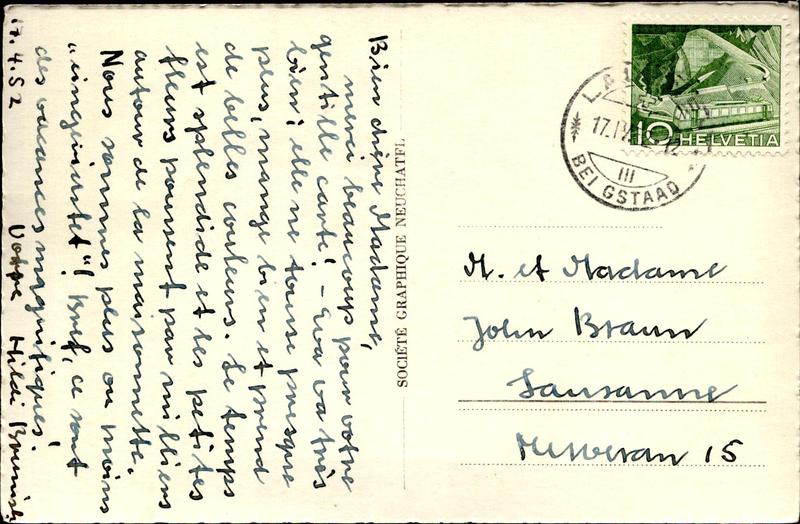 Bien chère Madame,
merci beaucoup pour votre
gentille carte! - Eva va très
bien; elle ne tousse presque
plus, mange bien et prend
de belles couleurs. Le temps
est splendide et les petites
fleurs poussent par milliers
autour de la maisonnette.
Nous sommes plus ou moins
"eingenistet"! Bref, ce sont
des vacances magnifiques!
17.4.52 Votre Hildi
SOCIÉTÉ GRAPHIQUE NEUCHATEL
10 HELVETIA
17.IV
III
BEI GSTAAD
M. et Madame
John Braun
Lausanne
15